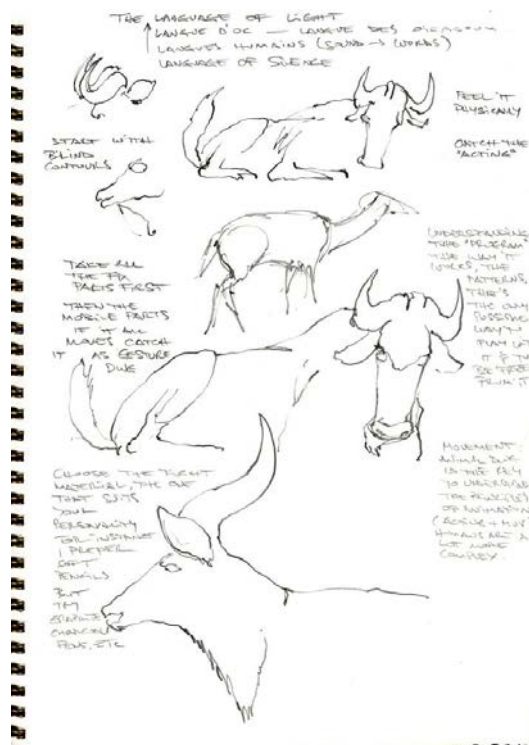 THE LANGUAGE OF LIGHT
LANGUE D'OC — LANGUE DES
LANGUES HUMAINS (SOUND → WORDS)
LANGUAGE OF SILENCE
START WITH
BLIND
CONTOURS
FEEL IT
PHYSICALLY
CATCH THE
"ACTING"
TAKE ALL
THE FIX
PARTS FIRST
THEN THE
MOBILE PARTS
IF IT ALL
MOVES CATCH
IT AS GESTURE
UNDERSTANDING
THE "PROGRAM"
THE WAY IT
WORKS, THE
PATTERNS,
THE ONLY
POSSIBLE
WAY TO
PLAY WIT
IT & TO
BE FREE
FROM IT
CHOOSE THE RIGHT
MATERIAL, THE ONE
THAT SUITS
YOUR
PERSONALITY
FOR INSTANCE
I PREFER
SOFT
PENCILS
BUT
TRY
GRAPHITE
CHARCOAL
PENS, ETC
MOVEMENT
ANIMAL
IS THE KEY
TO UNDERSTAND
THE PRINCIPLES
OF ANIMATION
HUMANS ARE A
LOT MORE
COMPLEX.